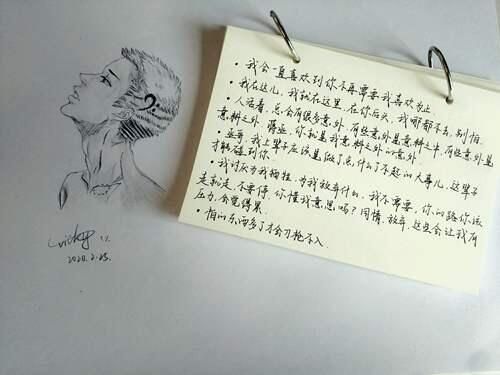 ·我会一直喜欢到你不再需要我喜欢为止
·我在这儿,我就在这里,在你后头,我哪都不去,别怕.
·人活着,总会有很多意外,有些意外是意料之中,有些意外是
意料之外.蒋丞,你就是我意料之外的意外.
·丞哥,我上辈子应该是做了点什么了不起的大事儿,这辈子
才能碰到你
·我讨厌为我牺牲,为我放弃什么,我不需要,你的路你该
走就走,不要停,你懂我意思吗?同情,放弃,这些会让我有
压力,会觉得累.
·怕的东西多了才会刀枪不入.
Vicky
2020.2.25.